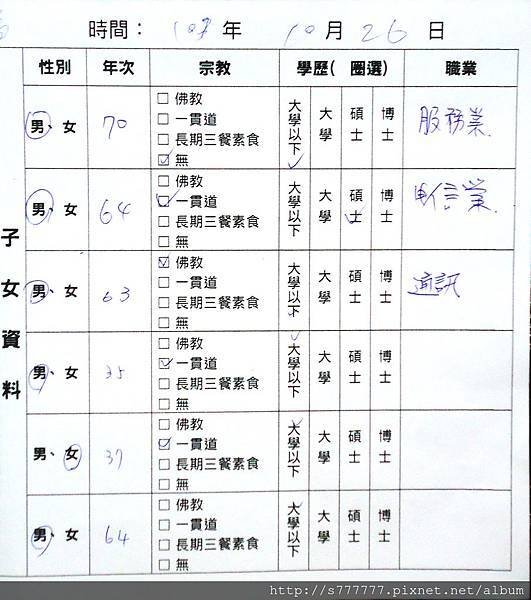 時間： 107 年 10 月 26 日
性別 年次 宗教 學歷( 圈選) 職業
子女資料
男、女 70 □ 佛教 大學以下 大學 碩士 博士 服務業.
□ 一貫道
□ 長期三餐素食
☑ 無
男、女 64 □ 佛教 大學以下 大學 碩士 博士 電信業.
☑ 一貫道
□ 長期三餐素食
□ 無
男、女 63 ☑ 佛教 大學以下 大學 碩士 博士 通訊
□ 一貫道
□ 長期三餐素食
□ 無
男、女 35 □ 佛教 大學以下 大學 碩士 博士
☑ 一貫道
□ 長期三餐素食
□ 無
男、女 37 □ 佛教 大學以下 大學 碩士 博士
☑ 一貫道
□ 長期三餐素食
□ 無
男、女 64 □ 佛教 大學以下 大學 碩士 博士
□ 一貫道
□ 長期三餐素食
□ 無
http://s777777.pixnet.net/album